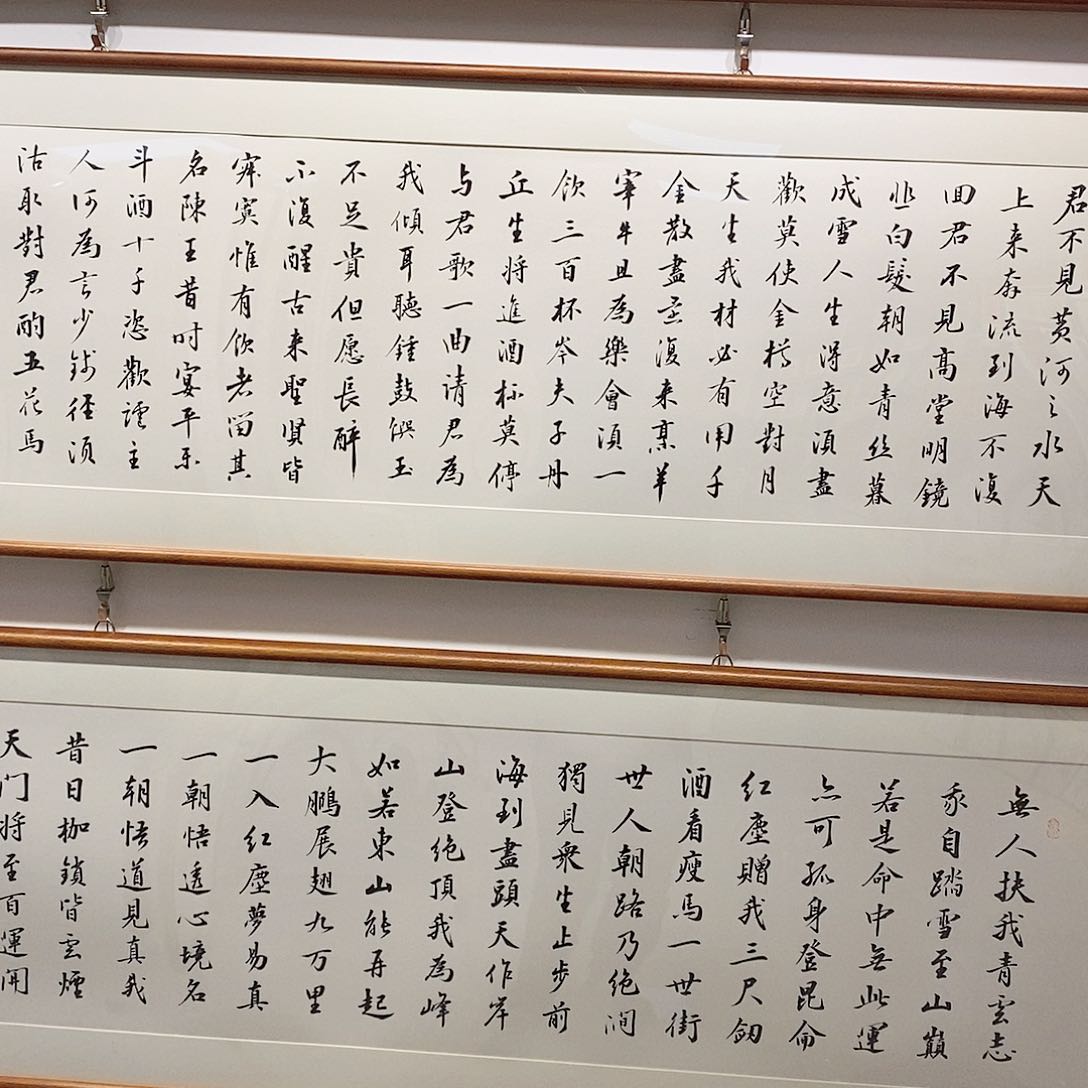 君不見黃河之水天
上来奔流到海不復
回君不見高堂明鏡
悲白髮朝如青丝暮
成雪人生得意須盡
歡莫使金樽空對月
天生我材必有用千
金散盡还復来烹羊
宰牛且為樂會須一
飲三百杯岑夫子丹
丘生将進酒杯莫停
与君歌一曲请君為
我傾耳聽鍾鼓饌玉
不足貴但愿長醉
不復醒古来聖賢皆
寂寞惟有饮者留其
名陳王昔时宴平乐
斗酒十千恣歡謔主
人何為言少钱徑須
沽取對君酌五花馬
無人扶我青雲志
我自踏雪至山巔
若是命中無此運
亦可孤身登昆侖
红塵贈我三尺劍
酒看瘦馬一世街
世人朝路乃绝涧
獨見衆生止步前
海到盡頭天作岸
山登绝頂我為峰
如若東山能再起
大鵬展翅九万里
一入红塵夢易真
一朝悟透心境名
一朝悟道見真我
昔日枷鎖皆雲煙
天门将至百運開